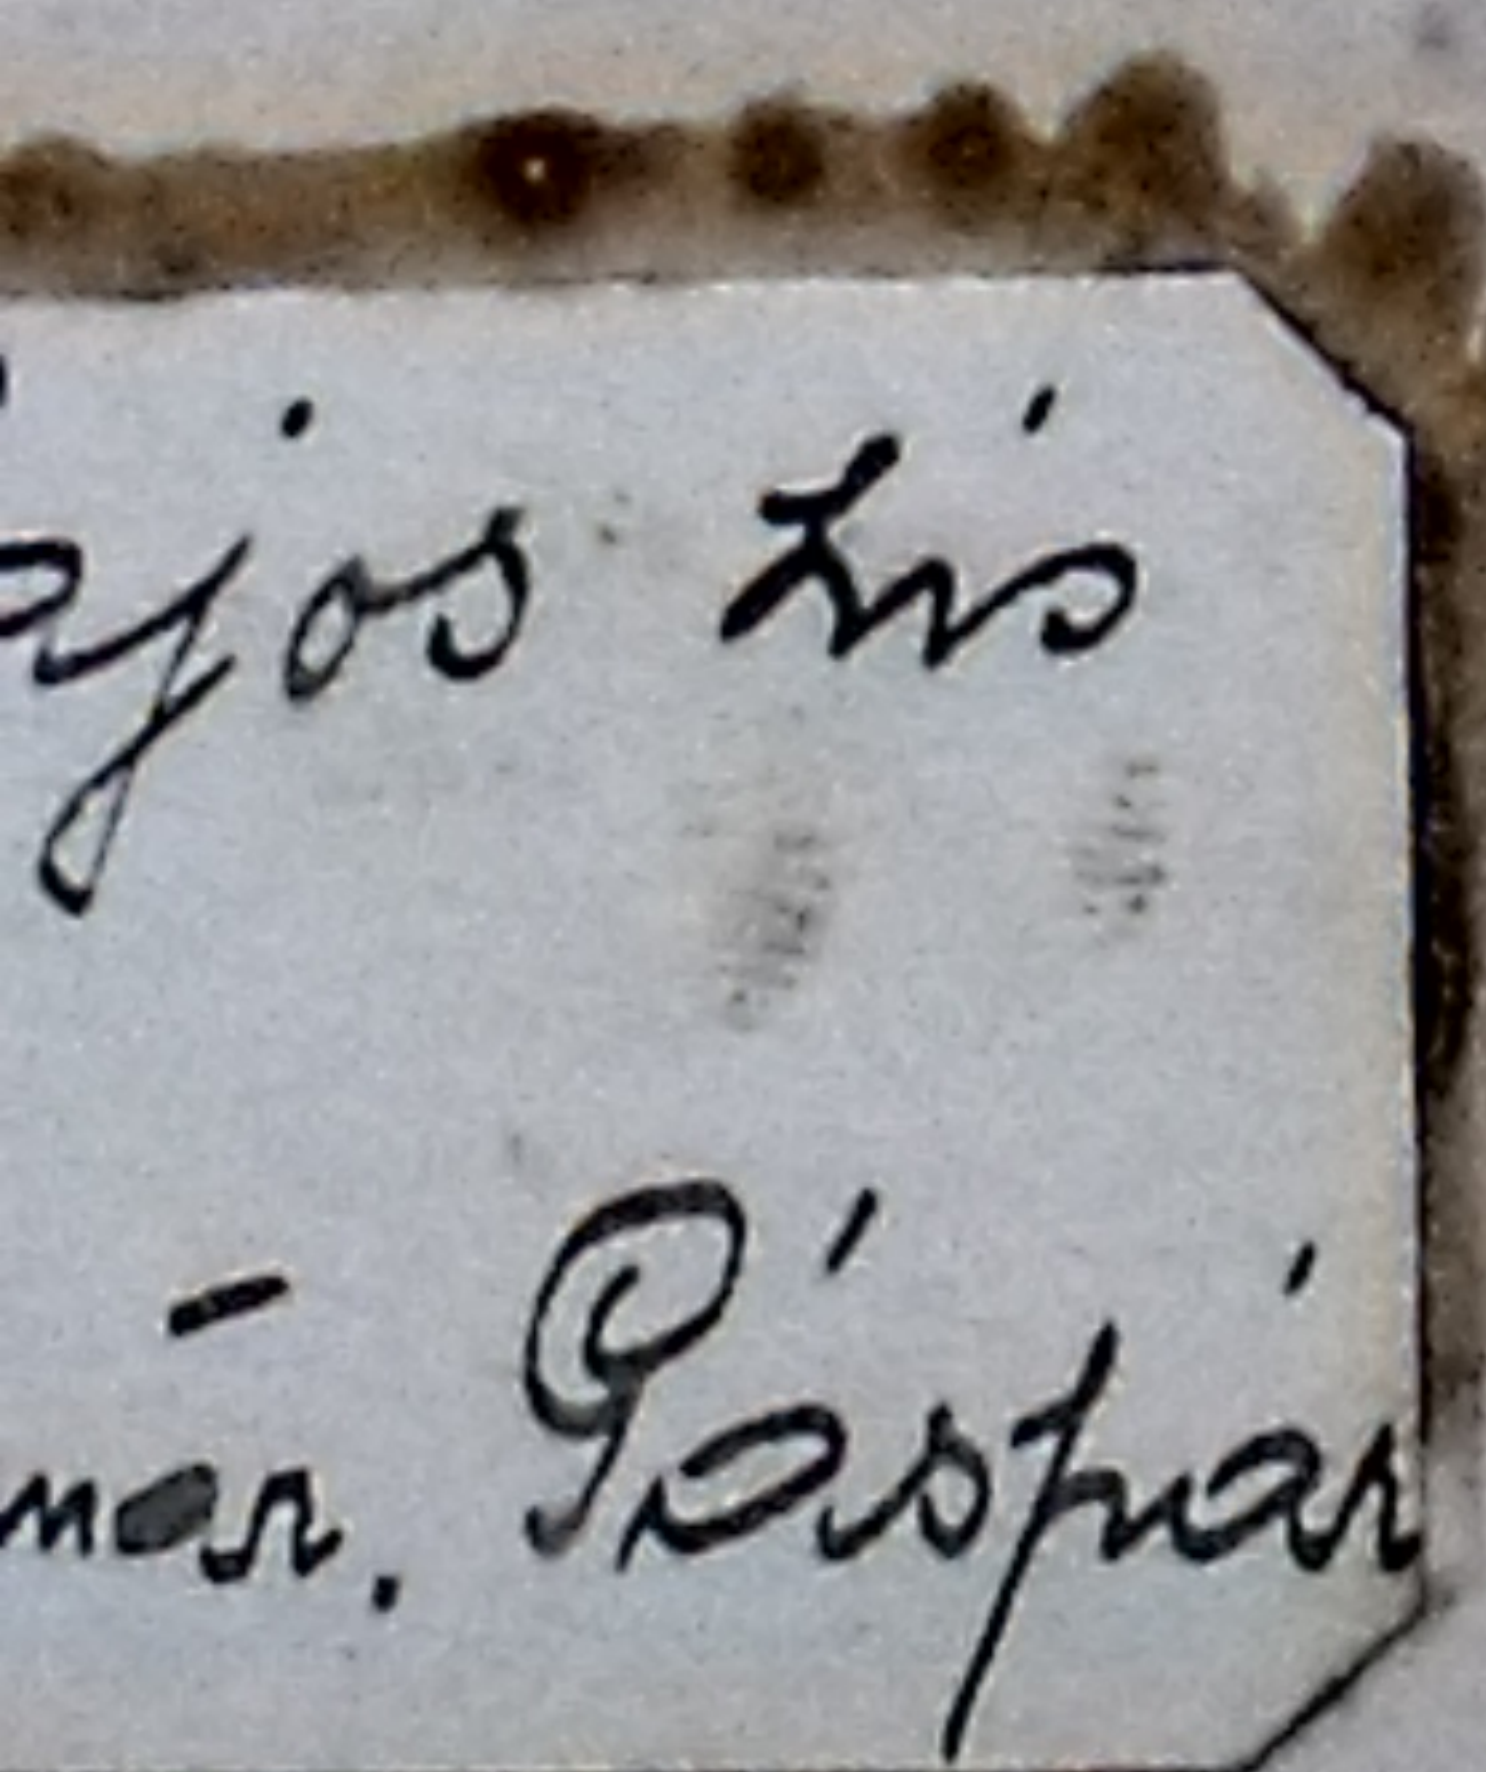 ajos Lis
mar. Gáspár